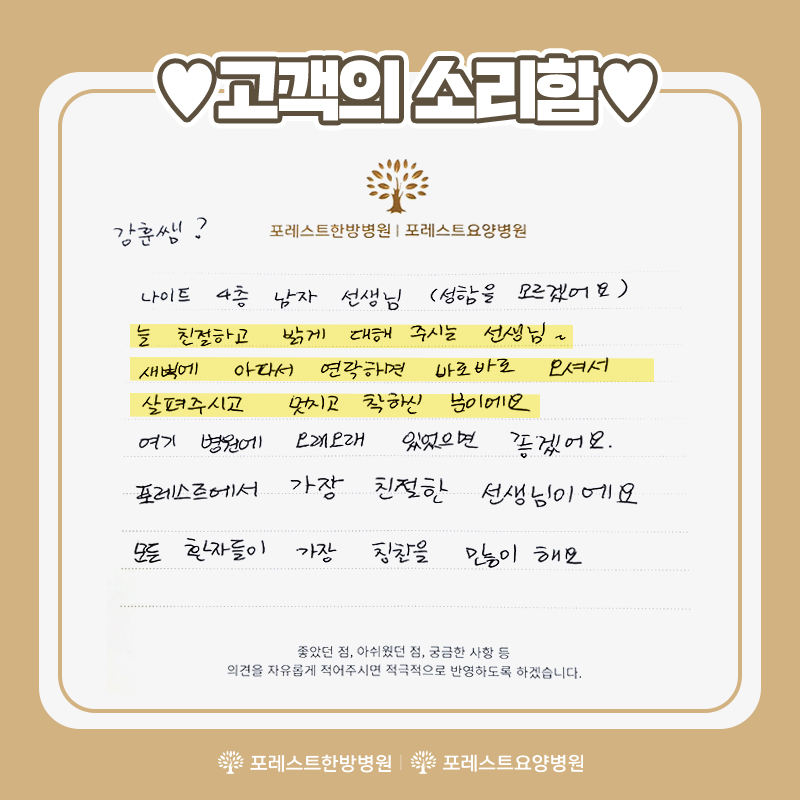 ♥고객의 소리함♥
포레스트한방병원 | 포레스트요양병원
강훈쌤?
나이트 4층 남자 선생님 (성함을 모르겠어요)
늘 친절하고 밝게 대해 주시는 선생님~
새벽에 아파서 연락하면 바로바로 오셔서
살펴주시고 멋지고 착하신 분이에요
여기 병원에 오래오래 있었으면 좋겠어요.
포레스트에서 가장 친절한 선생님이에요
모든 환자들이 가장 칭찬을 많이 해요
좋았던 점, 아쉬웠던 점, 궁금한 사항 등
의견을 자유롭게 적어주시면 적극적으로 반영하도록 하겠습니다.
포레스트한방병원 | 포레스트요양병원